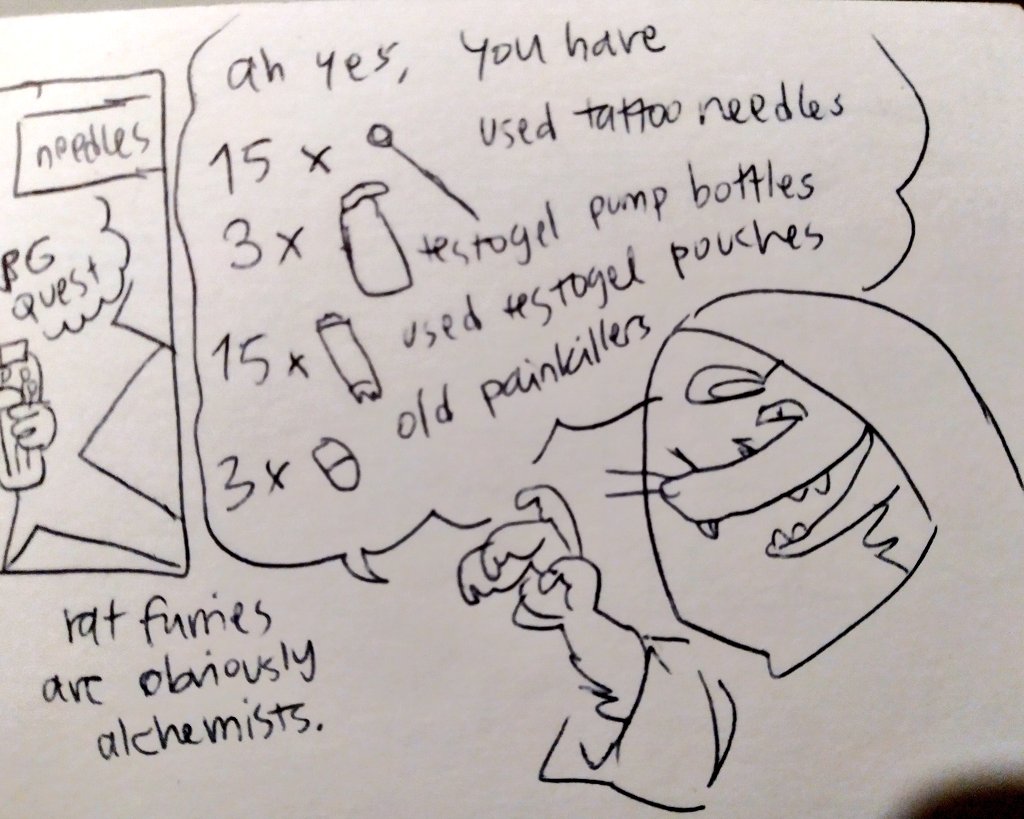 needles
quest
ah yes, you have
15 x used tattoo needles
3 x testogel pump bottles
15 x used testogel pouches
3 x old painkillers
rat furries
are obviously
alchemists.